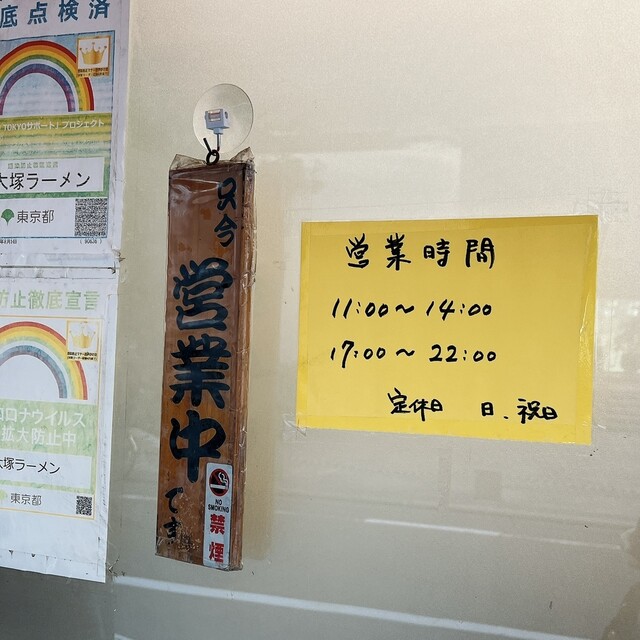 底点検済
「TOKYOサポート」プロジェクト
大塚ラーメン
東京都
防止徹底宣言
コロナウイルス
拡大防止中
大塚ラーメン
東京都
只今
営業中
です
NO
SMOKING
禁煙
営業時間
11:00～14:00
17:00～22:00
定休日 日、祝日